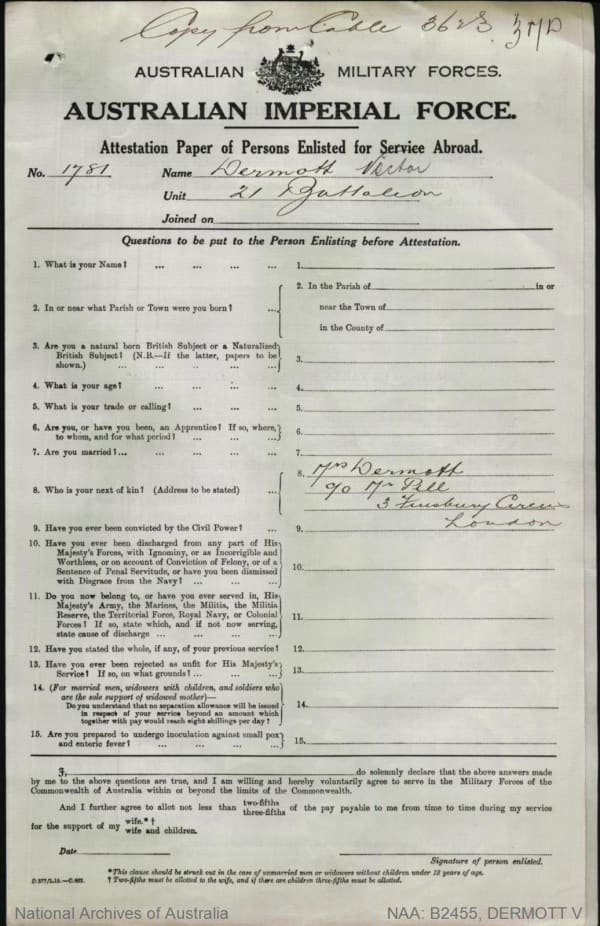 Copy from Cable 3623
AUSTRALIAN MILITARY FORCES.
AUSTRALIAN IMPERIAL FORCE.
Attestation Paper of Persons Enlisted for Service Abroad.
No. 1781 Name Dermott Victor
Unit 21 Battalion
Joined on
Questions to be put to the Person Enlisting before Attestation.
1. What is your Name? ... ... ... ... 1.
2. In or near what Parish or Town were you born? ... 2. In the Parish of in or
near the Town of
in the County of
3. Are you a natural born British Subject or a Naturalized
British Subject? (N.B.—If the latter, papers to be
shown.) ... ... ... ... ... 3.
4. What is your age? ... ... ... ... 4.
5. What is your trade or calling? ... ... ... 5.
6. Are you, or have you been, an Apprentice? If so, where,
to whom, and for what period? ... ... ... 6.
7. Are you married?... ... ... ... ... 7.
8. Who is your next of kin? (Address to be stated) ... 8. Mrs Dermott
c/o Mr Pell
3 Finsbury Circus
London
9. Have you ever been convicted by the Civil Power? ... 9.
10. Have you ever been discharged from any part of His
Majesty's Forces, with Ignominy, or as Incorrigible and
Worthless, or on account of Conviction of Felony, or of a
Sentence of Penal Servitude, or have you been dismissed
with Disgrace from the Navy? ... ... ... 10.
11. Do you now belong to, or have you ever served in, His
Majesty's Army, the Marines, the Militia, the Militia
Reserve, the Territorial Force, Royal Navy, or Colonial
Forces? If so, state which, and if not now serving,
state cause of discharge ... ... ... ... 11.
12. Have you stated the whole, if any, of your previous service? 12.
13. Have you ever been rejected as unfit for His Majesty's
Service? If so, on what grounds? ... ... ... 13.
14. (For married men, widowers with children, and soldiers who
are the sole support of widowed mother)—
Do you understand that no separation allowance will be issued
in respect of your service beyond an amount which
together with pay would reach eight shillings per day? 14.
15. Are you prepared to undergo inoculation against small pox
and enteric fever? ... ... ... ... 15.
I, do solemnly declare that the above answers made
by me to the above questions are true, and I am willing and hereby voluntarily agree to serve in the Military Forces of the
Commonwealth of Australia within or beyond the limits of the Commonwealth.
And I further agree to allot not less than two-fifths three-fifths of the pay payable to me from time to time during my service
for the support of my wife.*† wife and children.
Date
Signature of person enlisted.
*This clause should be struck out in the case of unmarried men or widowers without children under 18 years of age.
† Two-fifths must be allotted to the wife, and if there are children three-fifths must be allotted.
National Archives of Australia NAA: B2455, DERMOTT V